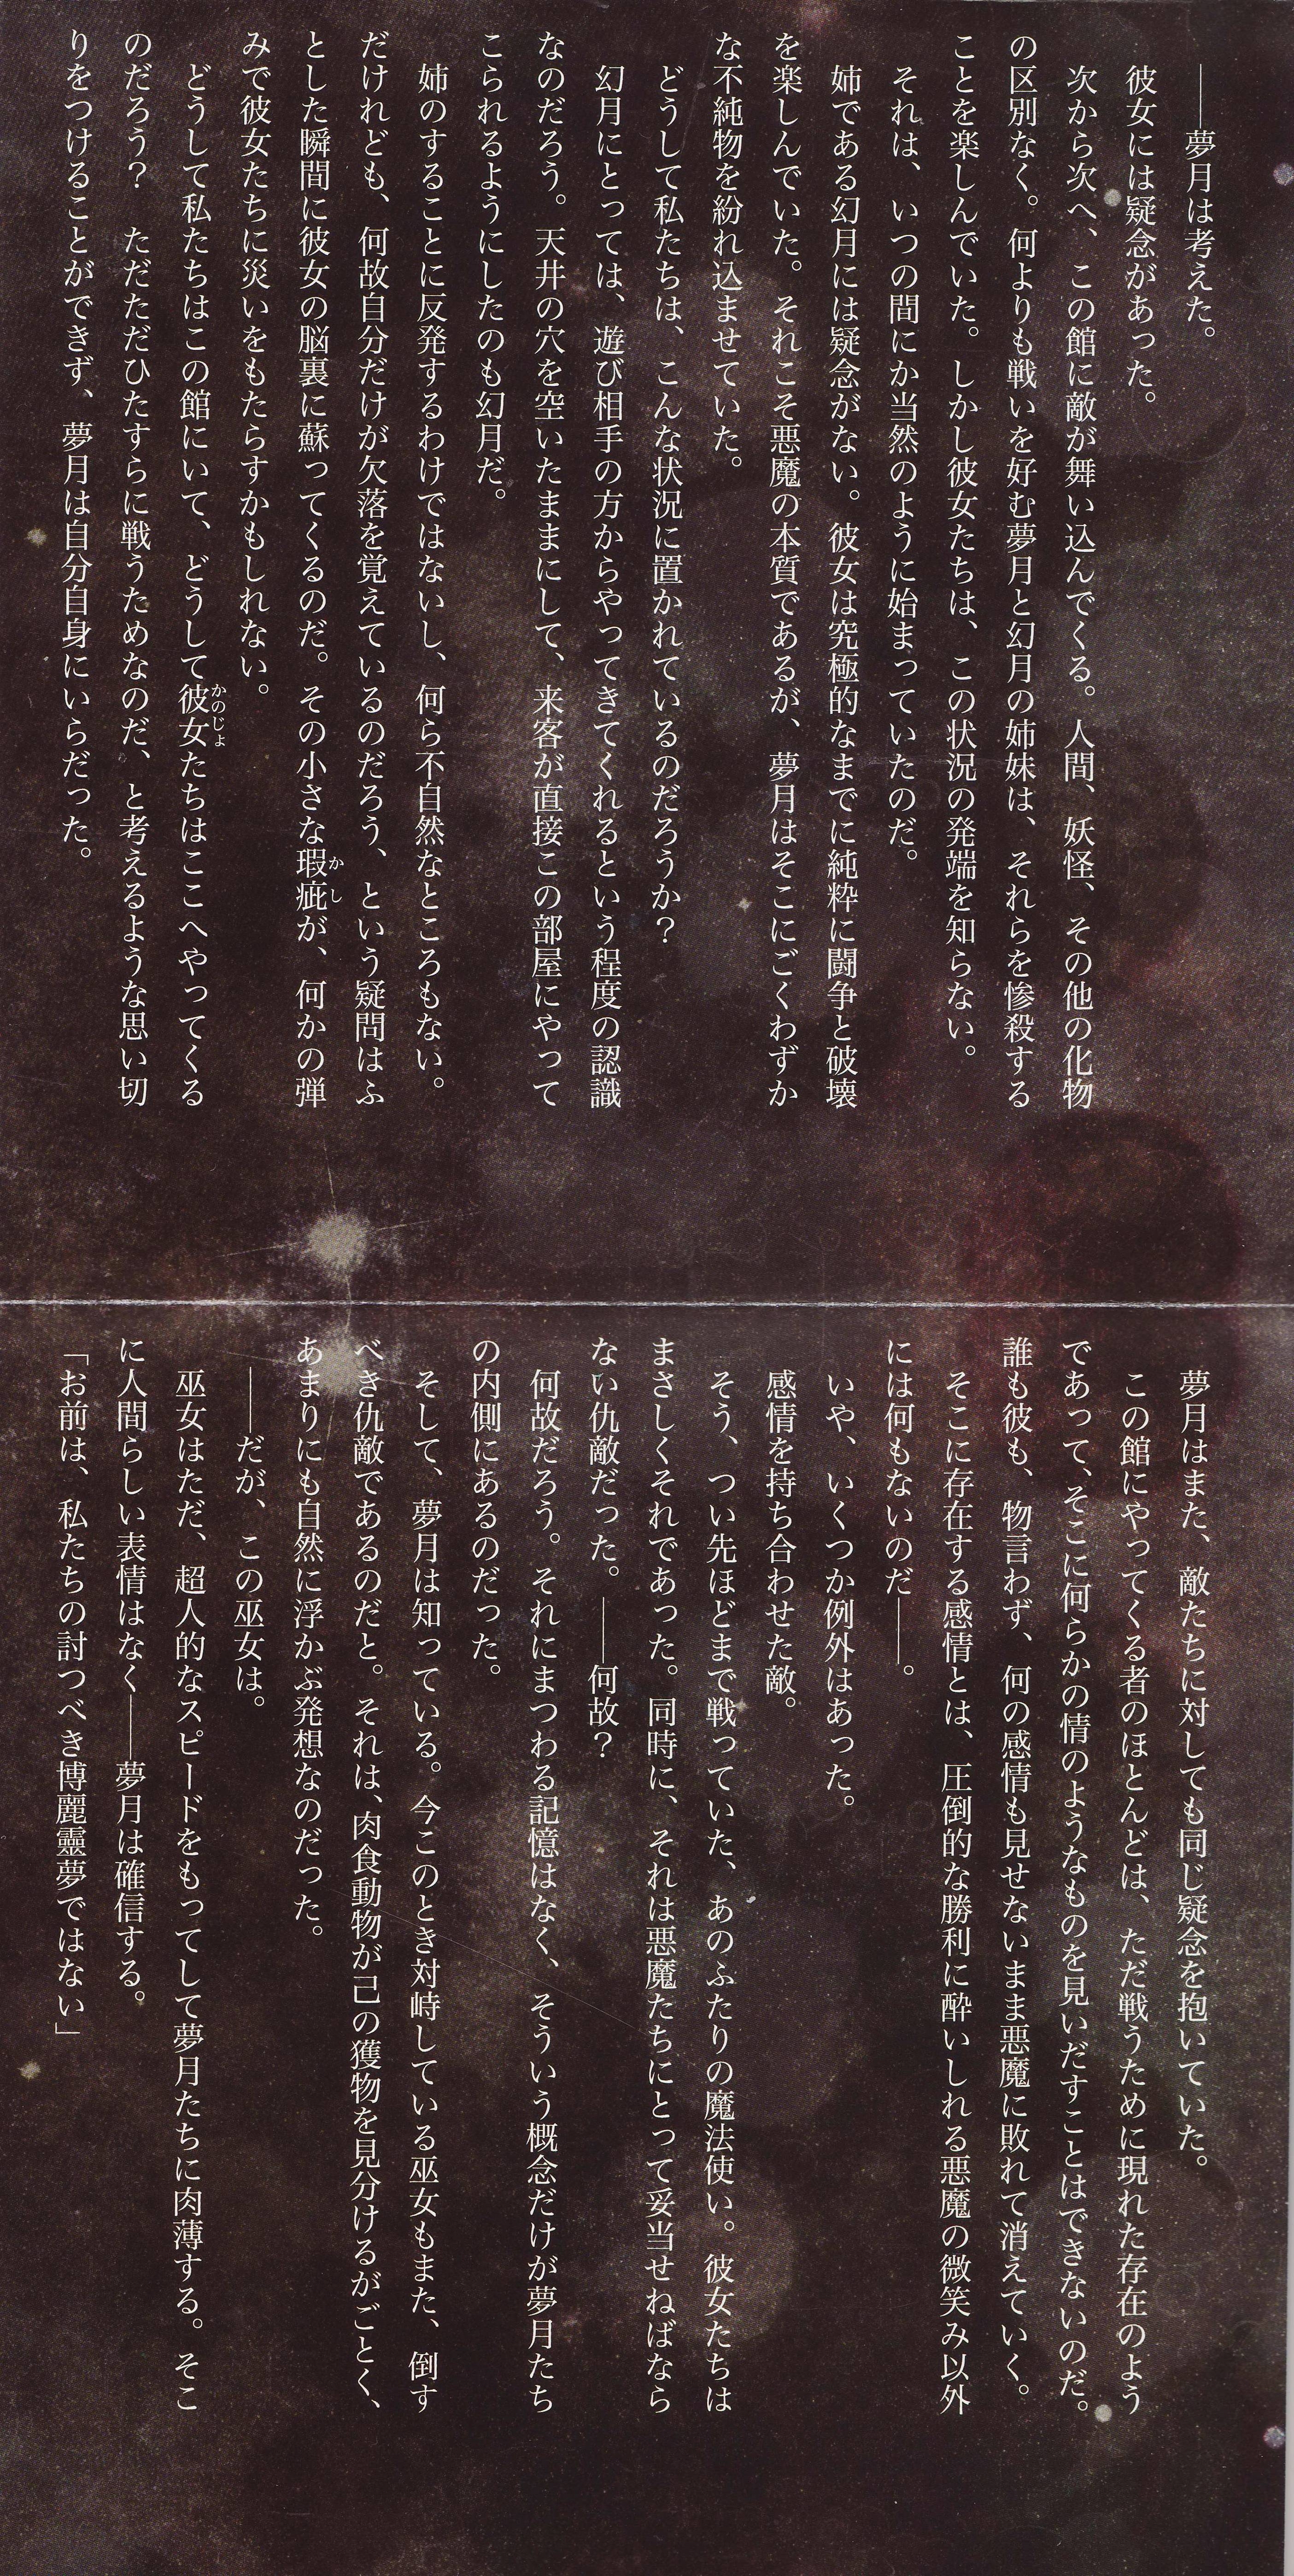 ――夢月は考えた。
彼女には疑念があった。
次から次へ、この館に敵が舞い込んでくる。人間、妖怪、その他の化物
の区別なく。何よりも戦いを好む夢月と幻月の姉妹は、それらを惨殺する
ことを楽しんでいた。しかし彼女たちは、この状況の発端を知らない。
それは、いつの間にか当然のように始まっていたのだ。
姉である幻月には疑念がない。彼女は究極的なまでに純粋に闘争と破壊
を楽しんでいた。それこそ悪魔の本質であるが、夢月はそこにごくわずか
な不純物を紛れ込ませていた。
どうして私たちは、こんな状況に置かれているのだろうか？
幻月にとっては、遊び相手の方からやってきてくれるという程度の認識
なのだろう。天井の穴を空いたままにして、来客が直接この部屋にやって
こられるようにしたのも幻月だ。
姉のすることに反発するわけではないし、何ら不自然なところもない。
だけれども、何故自分だけが欠落を覚えているのだろう、という疑問はふ
とした瞬間に彼女の脳裏に蘇ってくるのだ。その小さな瑕疵かしが、何かの弾
みで彼女たちに災いをもたらすかもしれない。
どうして私たちはこの館にいて、どうして彼女かのじょたちはここへやってくる
のだろう？　ただただひたすらに戦うためなのだ、と考えるような思い切
りをつけることができず、夢月は自分自身にいらだった。
夢月はまた、敵たちに対しても同じ疑念を抱いていた。
この館にやってくる者のほとんどは、ただ戦うために現れた存在のよう
であって、そこに何らかの情のようなものを見いだすことはできないのだ。
誰も彼も、物言わず、何の感情も見せないまま悪魔に敗れて消えていく。
そこに存在する感情とは、圧倒的な勝利に酔いしれる悪魔の微笑み以外
には何もないのだ――。
いや、いくつか例外はあった。
感情を持ち合わせた敵。
そう、つい先ほどまで戦っていた、あのふたりの魔法使い。彼女たちは
まさしくそれであった。同時に、それは悪魔たちにとって妥当せねばなら
ない仇敵だった。――何故？
何故だろう。それにまつわる記憶はなく、そういう概念だけが夢月たち
の内側にあるのだった。
そして、夢月は知っている。今このとき対峙している巫女もまた、倒す
べき仇敵であるのだと。それは、肉食動物が己の獲物を見分けるがごとく、
あまりにも自然に浮かぶ発想なのだった。
――だが、この巫女は。
巫女はただ、超人的なスピードをもってして夢月たちに肉薄する。そこ
に人間らしい表情はなく――夢月は確信する。
「お前は、私たちの討つべき博麗靈夢ではない」